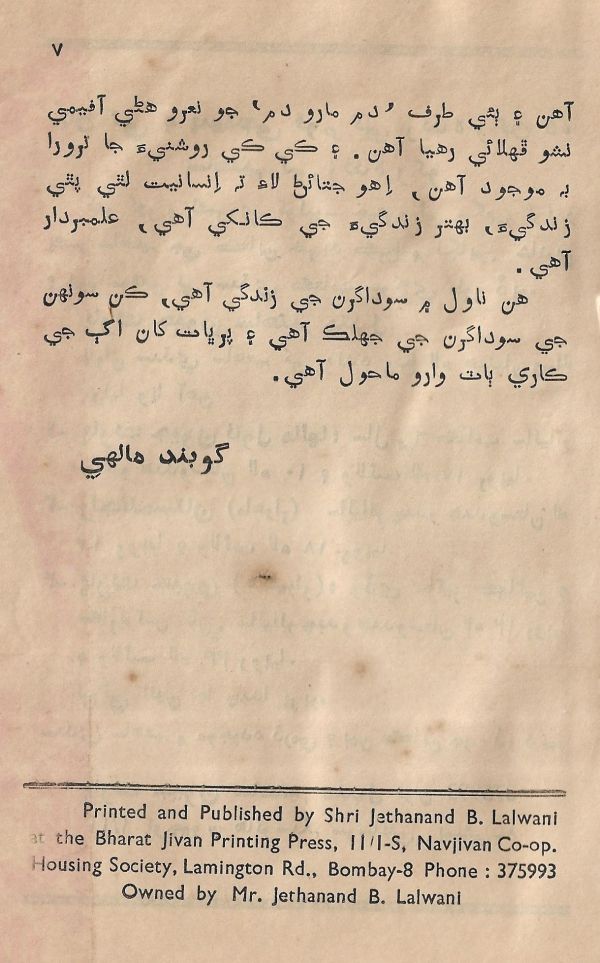 ۷
آهن ۽ ٻئي طرف ’دم مارو دم‘ جو نعرو هڻي آفيمي
نشو ڦهلائي رهيا آهن. ۽ ڪي ڪي روشنيءَ جا ٽرورا
بہ موجود آهن, اِهو جتائڻ لاءِ تہ اِنسانيت لٿي پٿي
زندگيءَ, بهتر زندگيءَ جي ڪانکي آهي, علمبردار
آهي.
هن ناول ۾ سوداگرن جي زندگي آهي, ڪن سونهن
جي سوداگرن جي جهلڪ آهي ۽ پرڀات کان اڳ جي
ڪاري ٻاٽ وارو ماحول آهي.
گوبند مالهي
Printed and Published by Shri Jethanand B. Lalwani
at the Bharat Jivan Printing Press, 11/1-S, Navjivan Co-op.
Housing Society, Lamington Rd., Bombay-8 Phone : 375993
Owned by Mr. Jethanand B. Lalwani